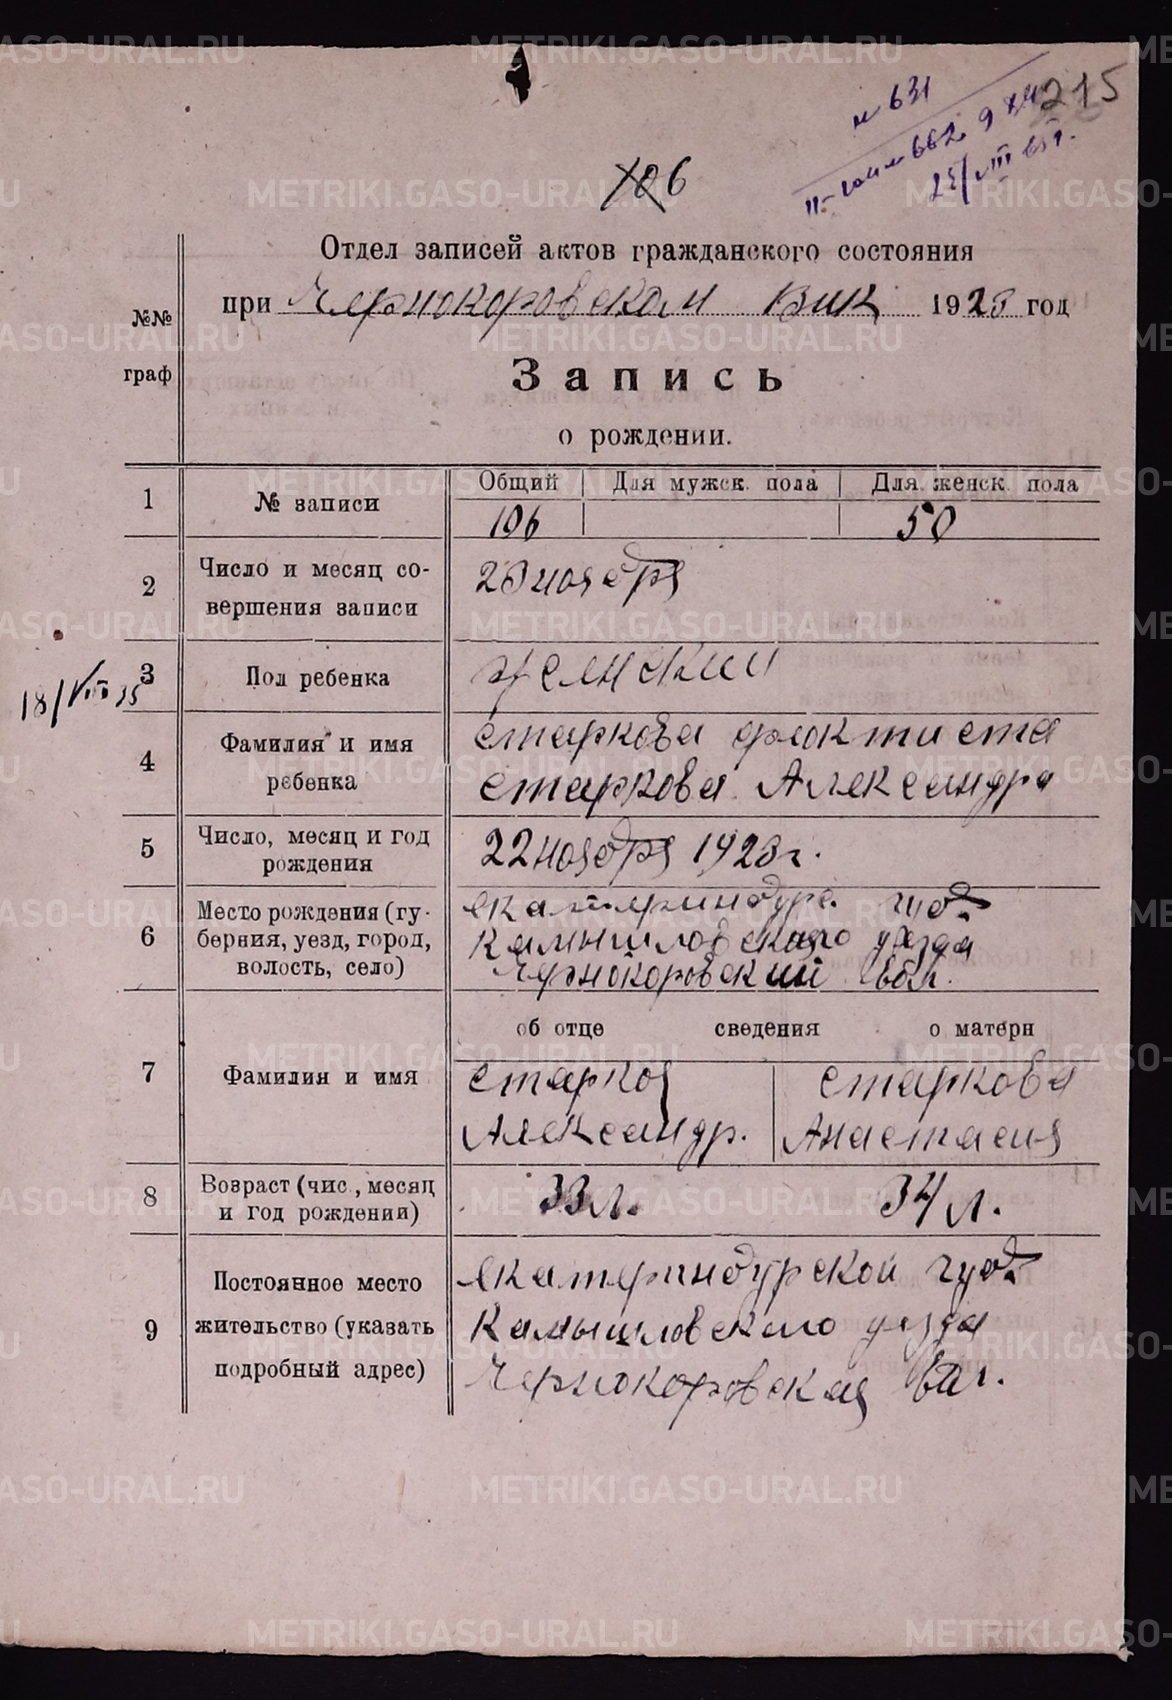 № 631
215
106
Отдел записей актов гражданского состояния
при Чернокоровском Вик 1923 год
№№ граф
Запись
о рождении.
1 № записи Общий Для мужск. пола Для женск. пола
106 50
2 Число и месяц со-
вершения записи
23 ноября
3 Пол ребенка женский
18/VIII 35
4 Фамилия и имя
ребенка
Старкова Фиоктиста
Старкова Александра
5 Число, месяц и год
рождения
22 ноября 1923 г.
6 Место рождения (гу-
берния, уезд, город,
волость, село)
Екатеринбург. губ.
Камышловского уезда
Чернокоровский вол.
об отце сведения о матери
7 Фамилия и имя
Старков Старкова
Александр. Анастасия
8 Возраст (чис., месяц
и год рождении)
33 л. 34 л.
9 Постоянное место
жительство (указать
подробный адрес)
Екатеринбурской губ.
Камышловского уезда
Чернокоровская вол.
METRIKI.GASO-URAL.RU